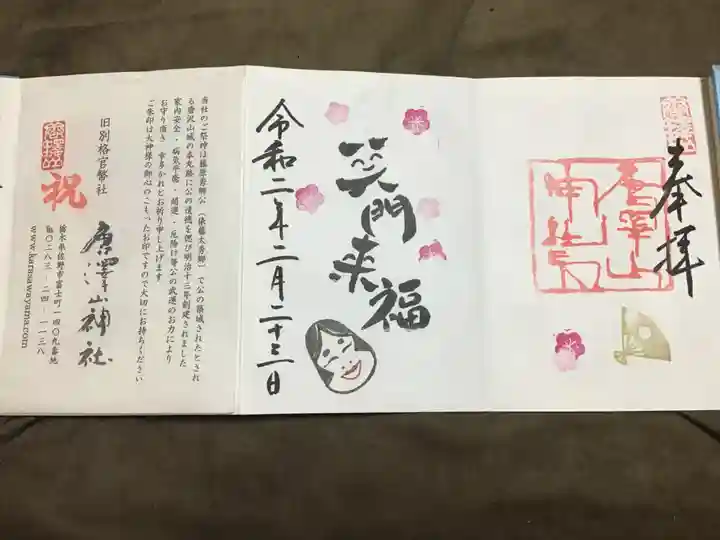 奉拝
唐澤山神社
笑門来福
令和二年二月二十三日
当社のご祭神は藤原秀郷公(俵藤太秀郷)で公の築城されたとされ
る唐沢山城の本丸跡に公の遺徳を偲び明治十三年創建されました
家内安全・病気平癒・開運・厄除け等公の武運のお力により
お守り頂き 幸多かれとお祈り申し上げます
ご朱印は大神様の御心のこもったお印ですので大切にお持ちください
旧別格官幣社
唐澤山神社
祝
栃木県佐野市富士町一四〇九番地
℡〇二八三-二四-一一三八
www.karasawayama.com